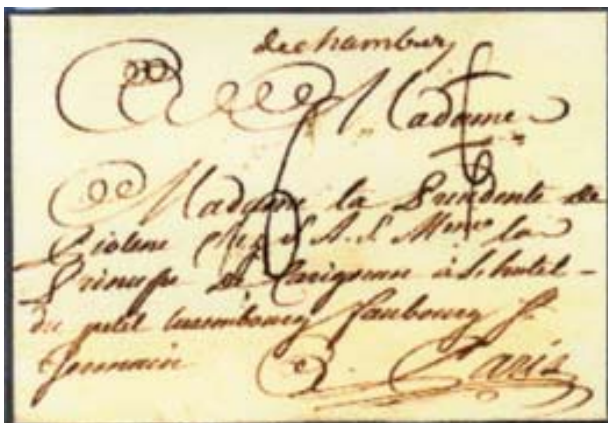 de chambery
A Madame
Madame la Presidente de
Piolenc chez S. A. S. Me la
Princesse de Carignan à l'hotel
du petit luxembourg faubourg St
Germain
Paris